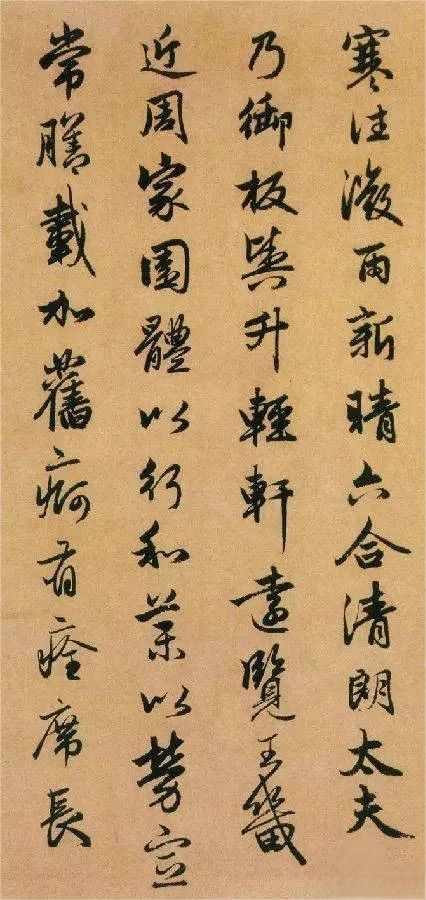 寒往微雨新晴六合清朗太夫
乃御板輿升輕軒遠覽王畿
近周家園體以行和藥以勞宣
常膳載加舊痾有痊席長